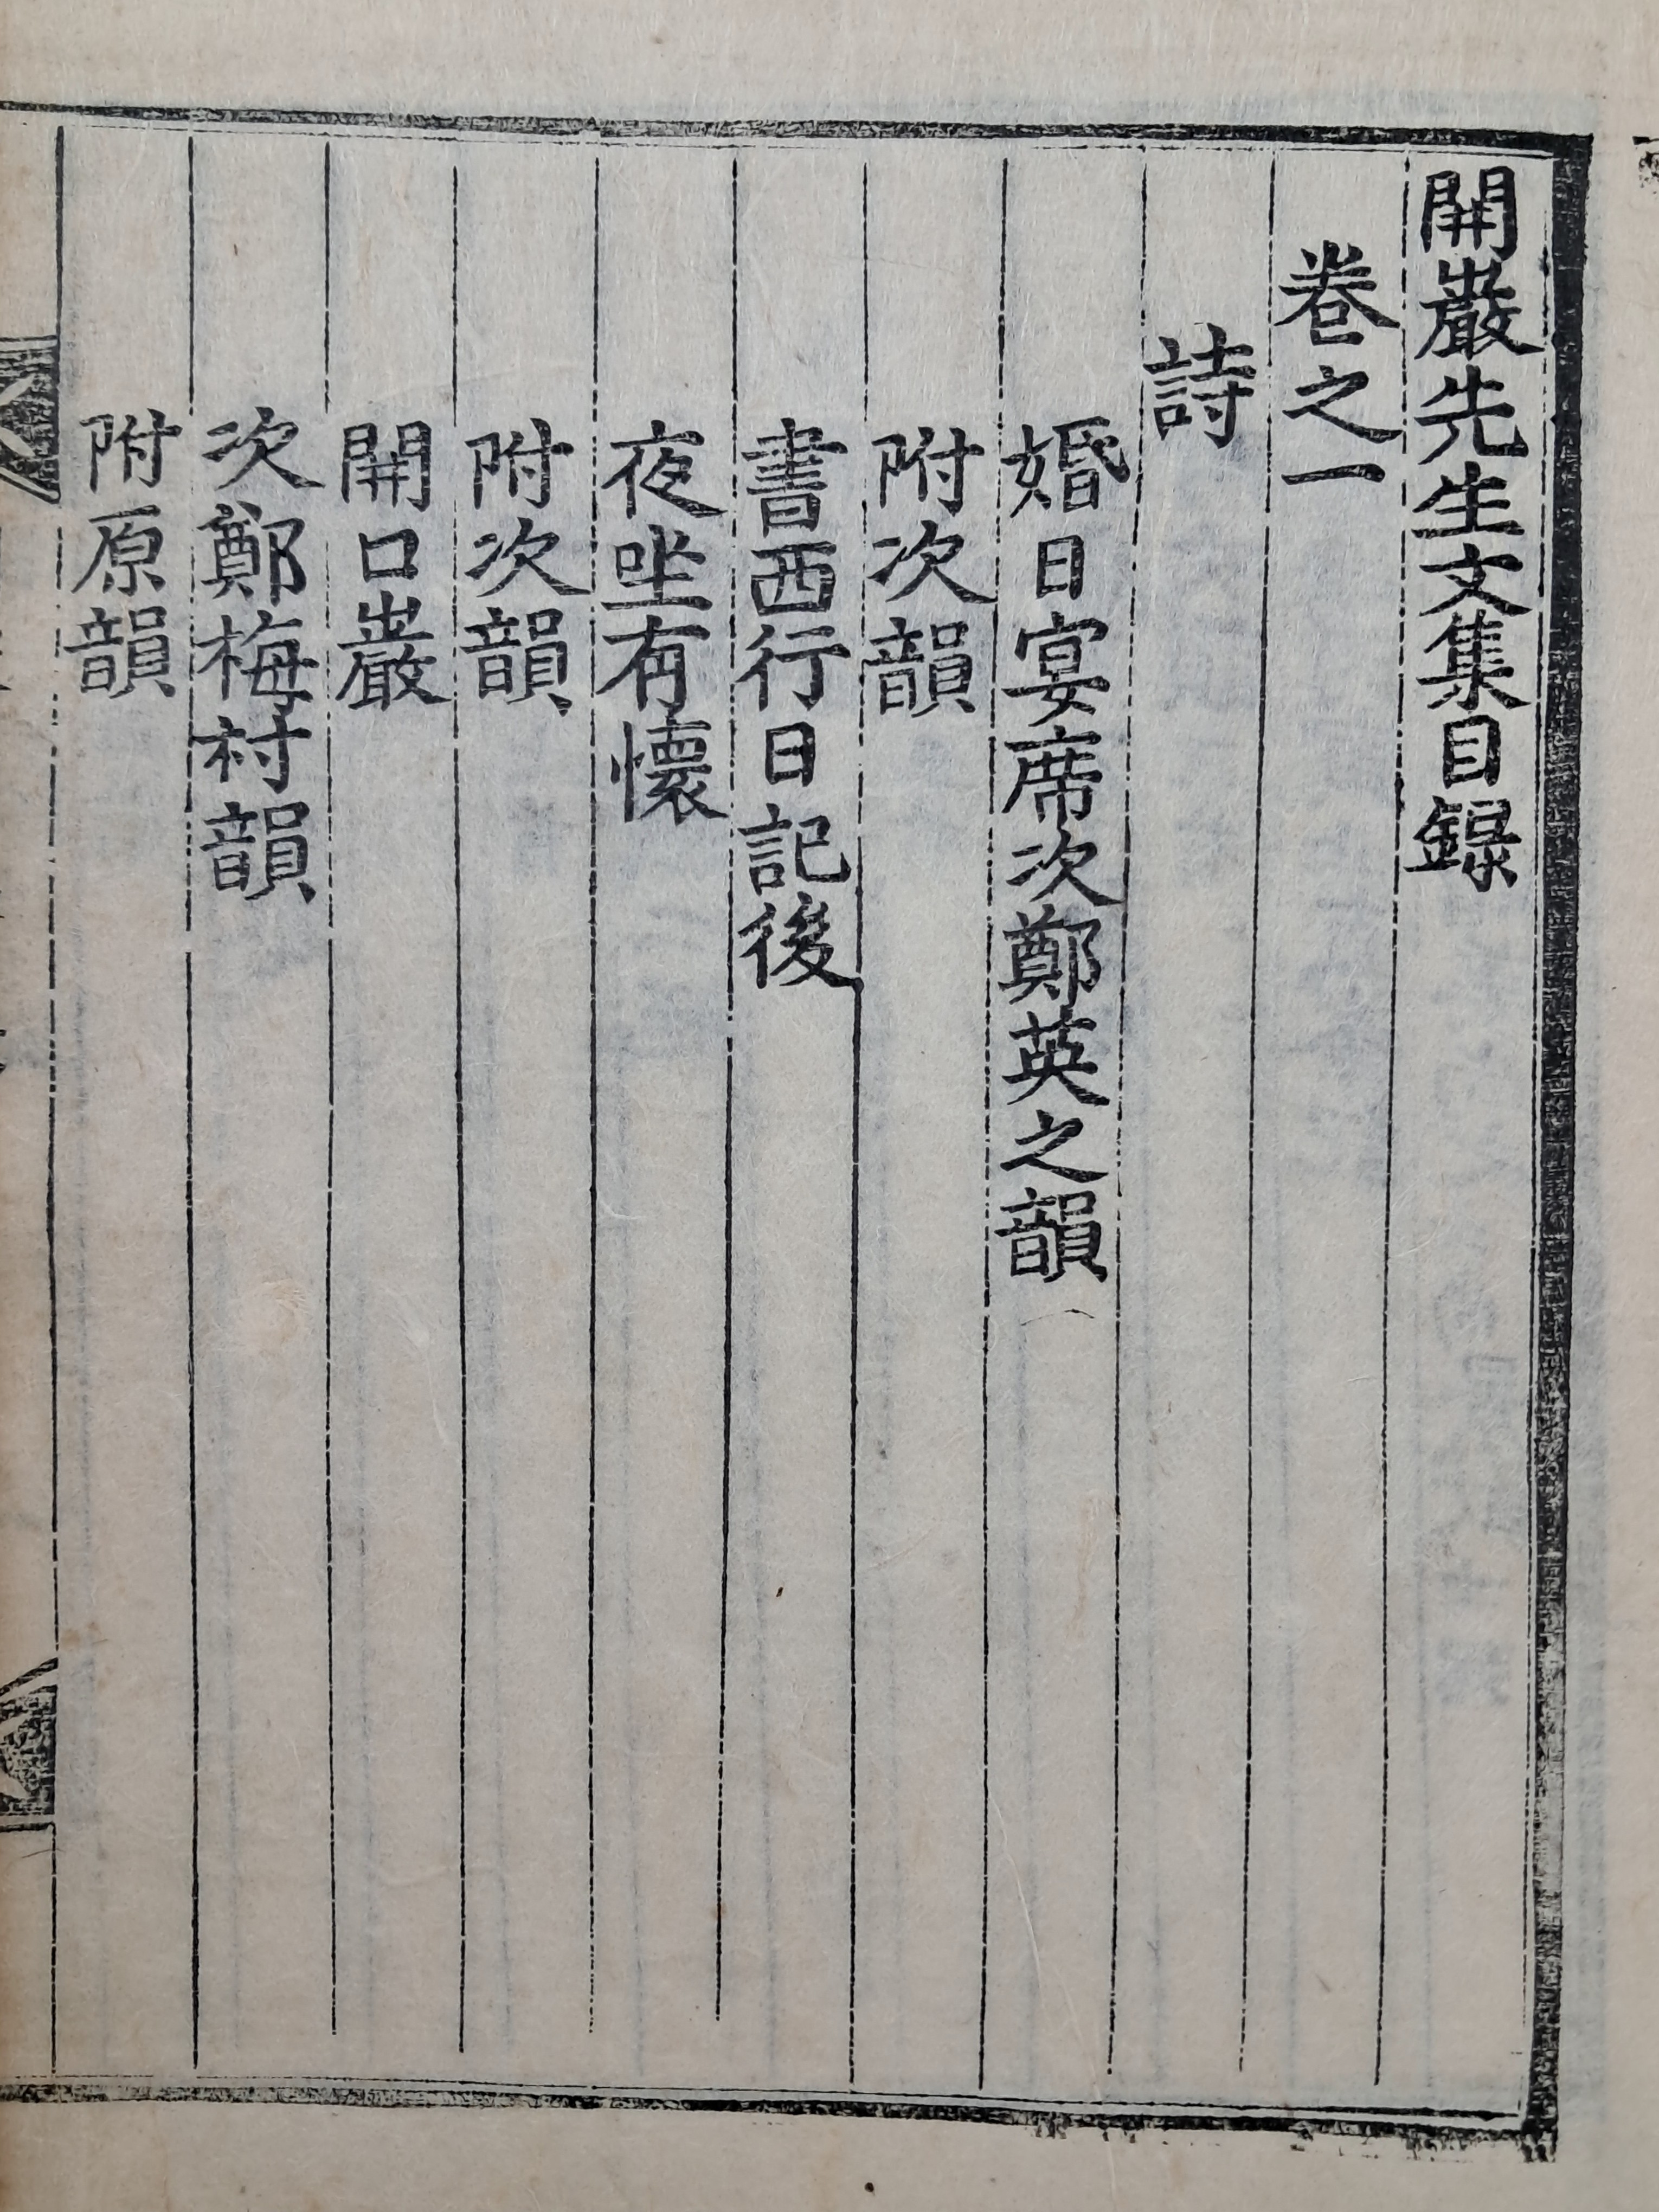 開巖先生文集目錄
卷之一
詩
婚日宴席次鄭英之韻
附次韻
書西行日記後
夜坐有懷
附次韻
開口巖
次鄭梅村韻
附原韻